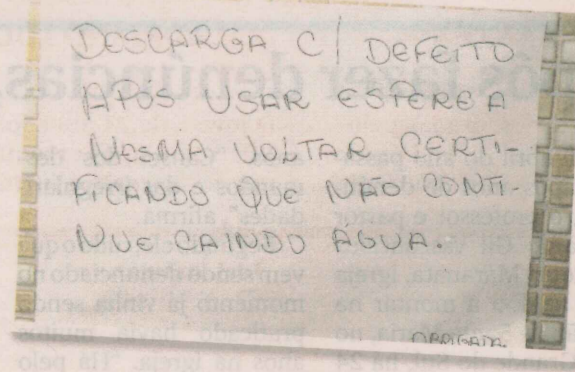 DESCARGA C/ DEFEITO
APÓS USAR ESPERE A
MESMA VOLTAR CERTI-
FICANDO QUE NÃO CONTI-
NUE CAINDO ÁGUA.
OBRIGADA.